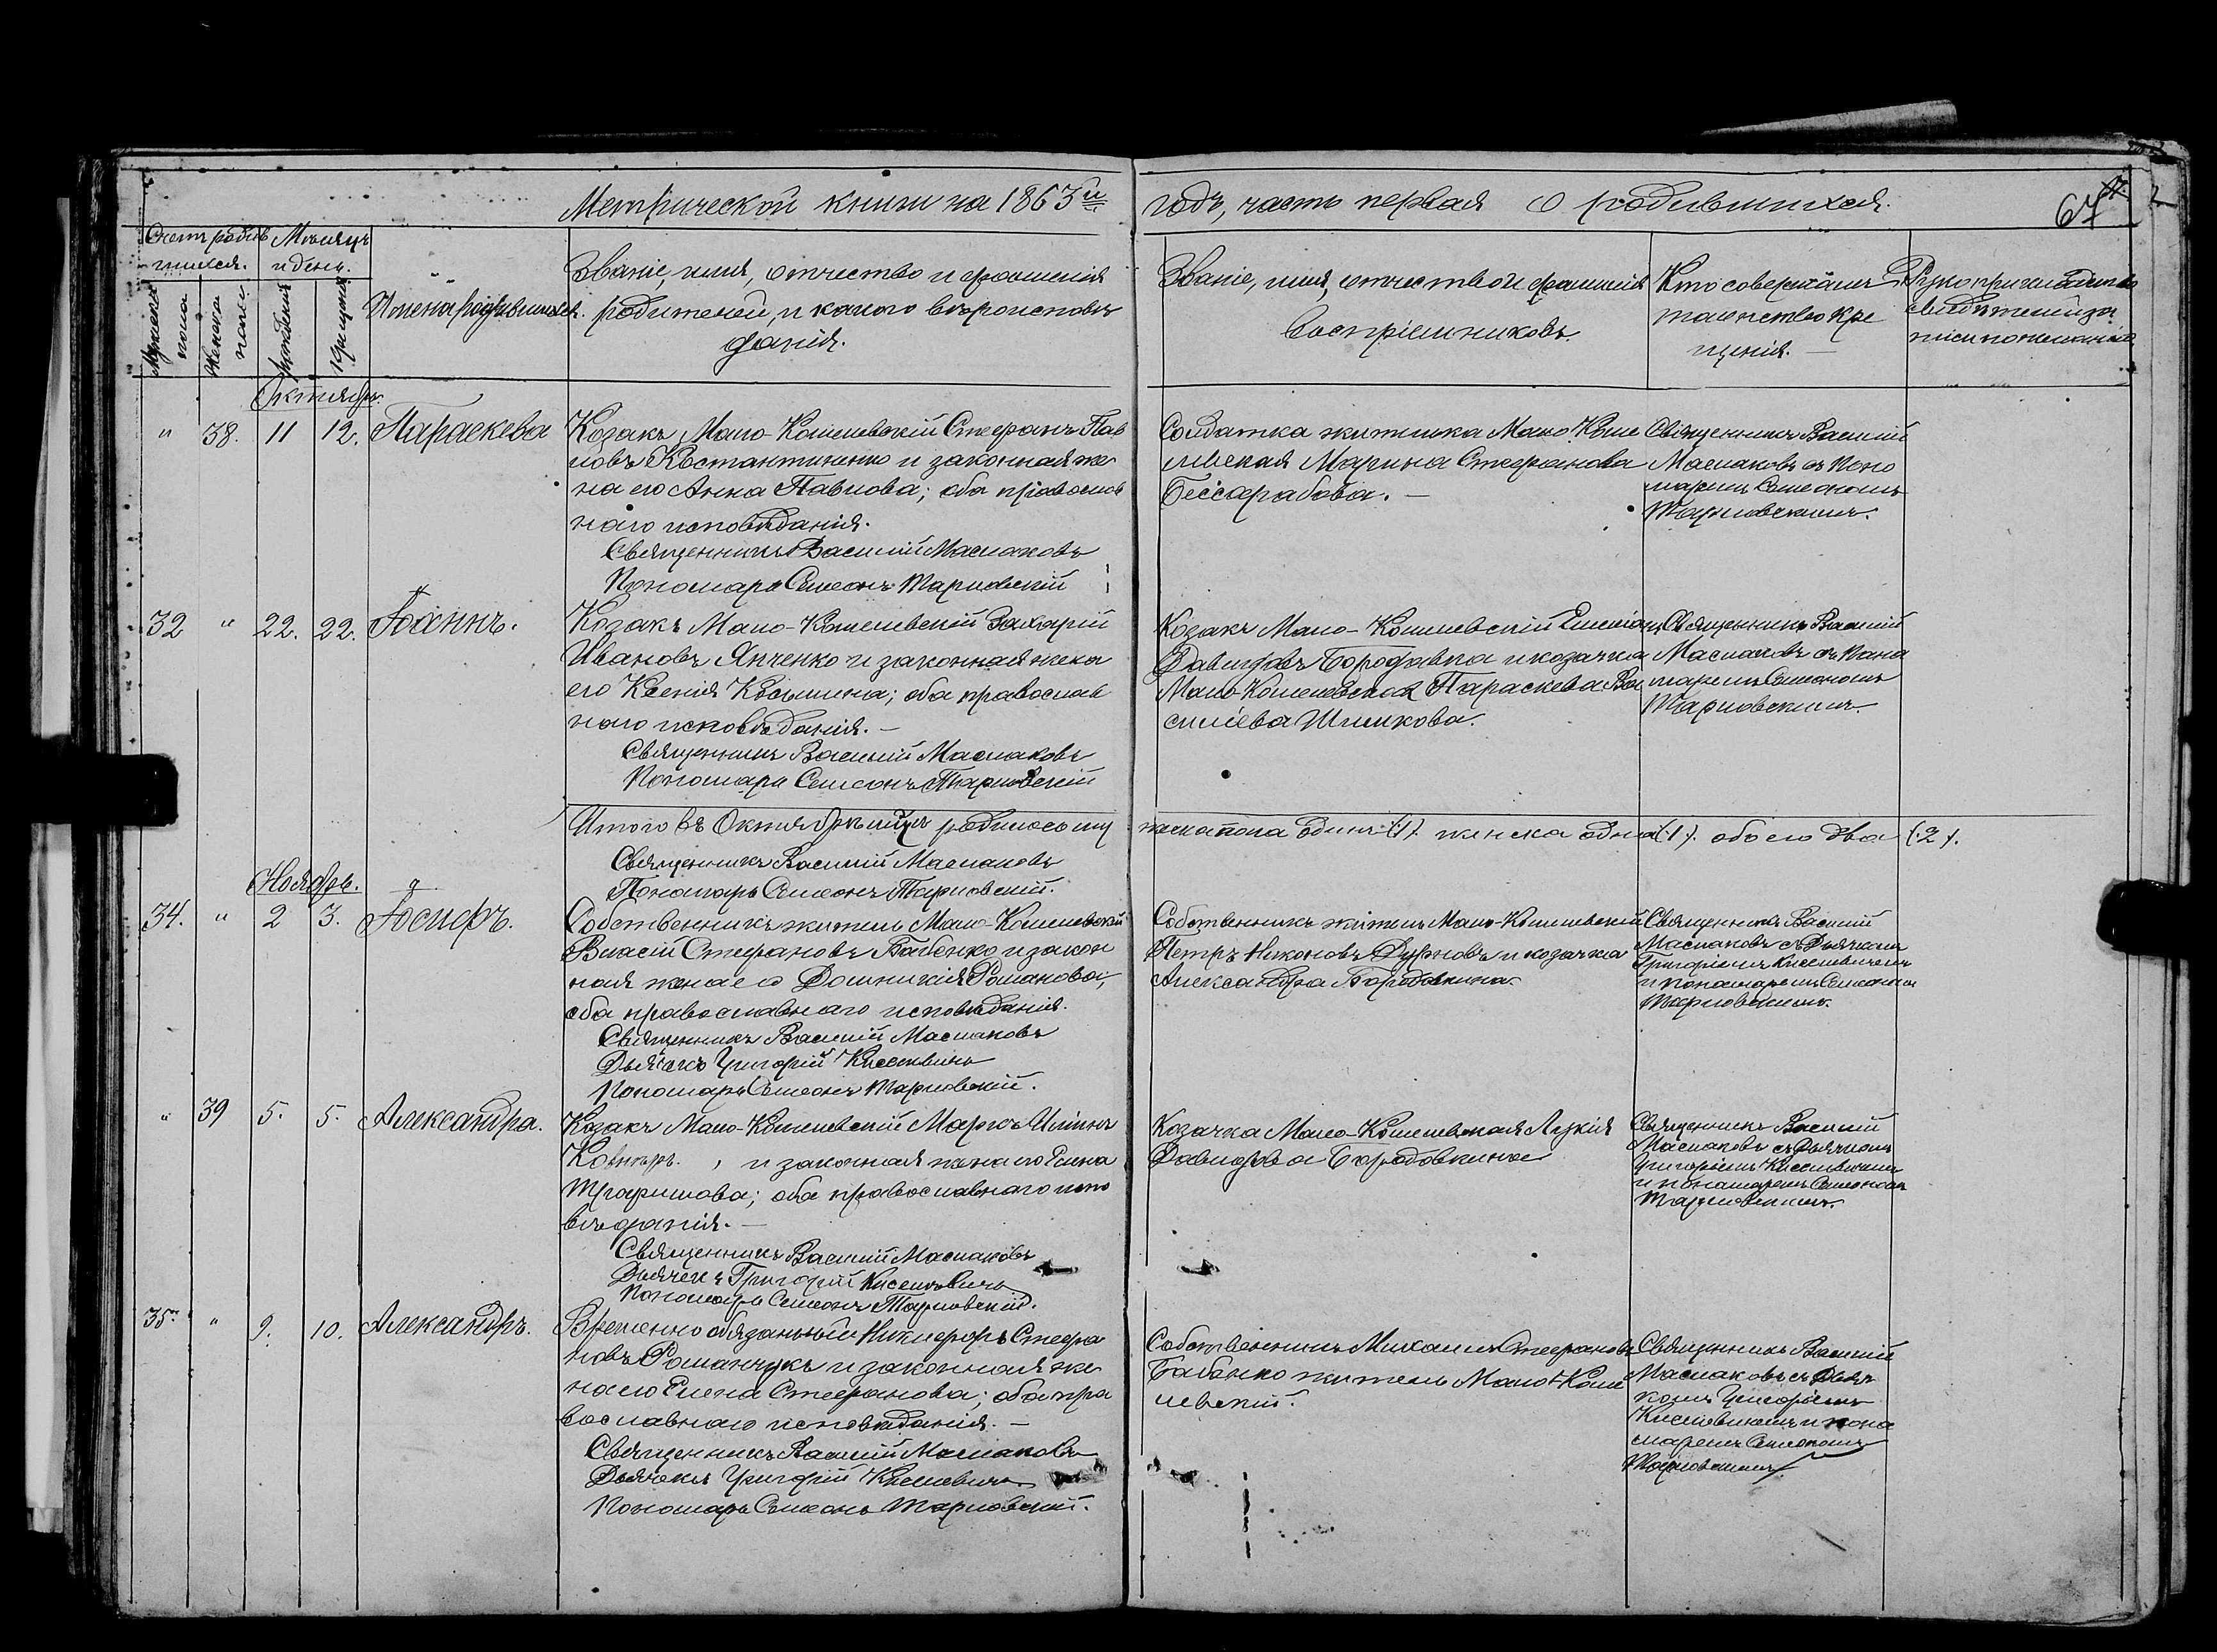 Метрической книги на 1863й годъ, часть первая о родившихся.
67
Счетъ родив
шихся.
Мѣсяцъ
и день.
Мужеска
пола
Женска
пола
рожденія
крещенія
Имена родившихся.
Званіе, имя, отчество и фамилія
родителей, и какого вѣроисповѣ
данія.
Званіе, имя, отчество и фамилія
воспріемниковъ.
Кто совершалъ
таинство кре
щенія. —
свидѣтелей за
писи по желанію
Октябрь.
" 38. 11 12. Параскева
Козакъ Мало-Кошелевскій Стефанъ Пав
ловъ Костантиненко и законная же
на его Анна Павлова; оба православ
наго исповѣданія.
Священникъ Василій Маслаковъ
Пономарь Симеонъ Тарновскій
Солдатка жителька Мало Коше
левская Марина Стефанова
Бессарабова. —
Священникъ Василій
Маслаковъ съ Поно
маремъ Симеономъ
Тарновскимъ.
32 " 22. 22. Іоаннъ.
Козакъ Мало-Кошелевскій Захарій
Ивановъ Япченко и законная жена
его Ксенія Косьмина; оба православ
наго исповѣданія. —
Священникъ Василій Маслаковъ
Пономарь Симеонъ Тарновскій
Козакъ Мало-Кошелевскій
Давидовъ Бородавка и козачка
Мало-Кошелевская Параскева Ва
силіева Шишкова.
Священникъ Василій
Маслаковъ съ Пана
маремъ Симеономъ
Тарновскимъ.
Итого въ Октябрѣ мцѣ родилось му
жеска пола одинъ (1). женска одна (1). обоего два (2).
Священникъ Василій Маслаковъ
Понамарь Симеонъ Тарновскій.
Ноябрь.
34. " 2 3. Іосифъ.
Собственникъ житель Мало-Кошелевскій
Власій Стефановъ Бабенко и закон
ная жена его Домникія Романова;
оба православнаго исповѣданія.
Священникъ Василій Маслаковъ
Дьячокъ Григорій Киселевичъ
Пономарь Симеонъ Тарновскій.
Собственникъ житель Мало-Кошелевскій
Петръ Никоновъ Дурновъ и козачка
Александра Бородавкина.
Священникъ Василій
Маслаковъ съ Дьячкомъ
Григоріемъ Киселевичемъ
и понамаремъ Симеономъ
Тарновскимъ.
" 39 5. 5. Александра.
Козакъ Мало-Кошелевскій Марко Ильинъ
и законная жена его Елена
Трофимова; оба православнаго испо
вѣданія. —
Священникъ Василій Маслаковъ
Дьячекъ Григорій Киселевичъ
Пономарь Симеонъ Тарновскій.
Козачка Мало-Кошелевская Лукія
Давидова Бородавкина
Священникъ Василій
Маслаковъ съ Дьячкомъ
Григоріемъ Киселевичемъ
и понамаремъ Симеономъ
Тарновскимъ.
35. " 9. 10. Александръ.
Временно обязанный Никифоръ Стефа
новъ Романчукъ и законная же
на его Елена Стефанова; оба пра
вославнаго исповѣданія. —
Священникъ Василій Маслаковъ
Дьячекъ Григорій Киселевичъ
Пономарь Симеонъ Тарновскій.
Собственникъ Михаилъ Стефановъ
Бабенко житель Мало-Коше
левскій.
Священникъ Василій
Маслаковъ съ Дьяч
комъ Григоріемъ
Киселевичемъ и пона
маремъ Симеономъ
Тарновскимъ